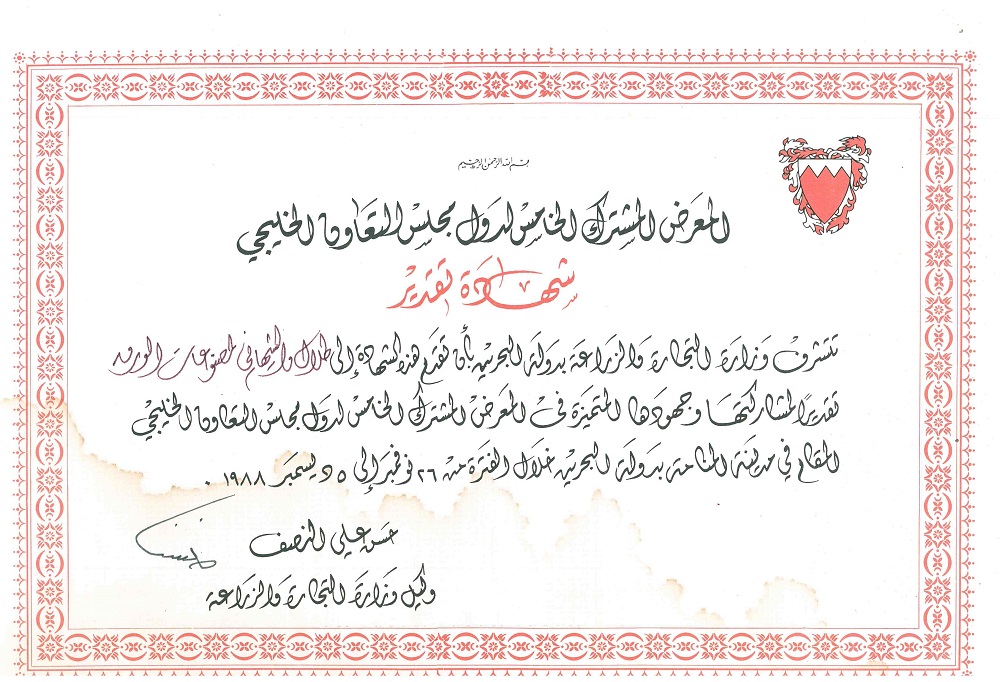 بسم الله الرحمن الرحيم
المعرض المشترك الخامس لدول مجلس التعاون الخليجي
شهادة تقدير
تتشرف وزارة التجارة والزراعة بدولة البحرين بأن تقدم هذه الشهادة إلى طلال لمصنوعات الورق
تقديرًا لمشاركتها وجهودها المتميزة في المعرض المشترك الخامس لدول مجلس التعاون الخليجي
المقام في مدينة المنامة بدولة البحرين خلال الفترة من ٢٦ نوفمبر إلى ٥ ديسمبر ١٩٨٨ .
حسن علي النصف
وكيل وزارة التجارة والزراعة